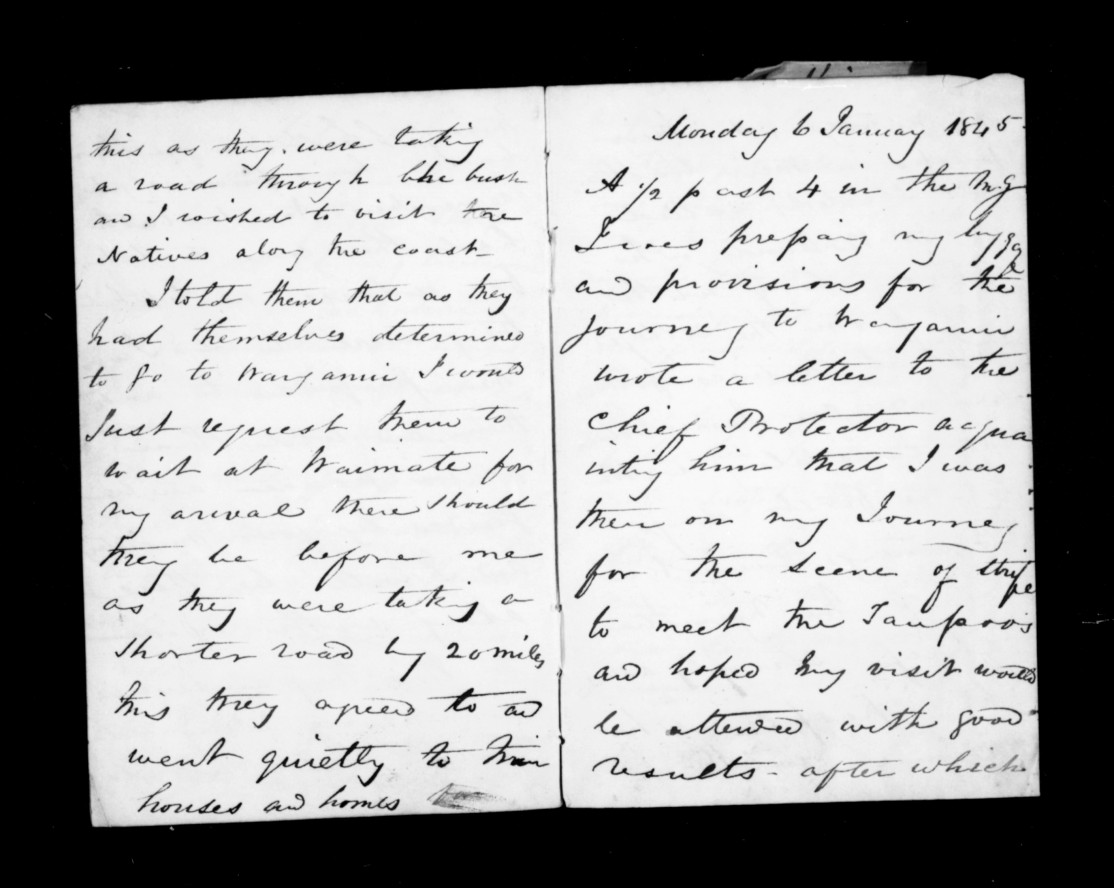 this as they were taking
a road through the bush
and I wished to visit the
Natives along the coast—
I told them that as they
had themselves determined
to go to Wanganui I would
Just request them to
wait at Waimate for
my arival there should
they be before me
as they were taking a
shorter road by 20 miles
this they agreed to and
went quietly to their
houses and homes
Monday 6 January 1845
A ½ past 4 in the Mg
I was preparing my luggage
and provisions for the
Journey to Wanganui
wrote a letter to the
Chief Protector acqua
inting him that I was
then on my Journey
for the Scene of strife
to meet the Taupoos
and hoped my visit would
be attended with good
results - after which